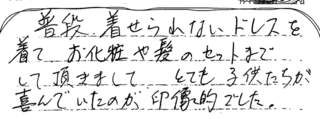 普段 着せられないドレスを
着て お化粧や髪のセットまで
して頂きまして とても子供たちが
喜んでいたのが 印像的でした。